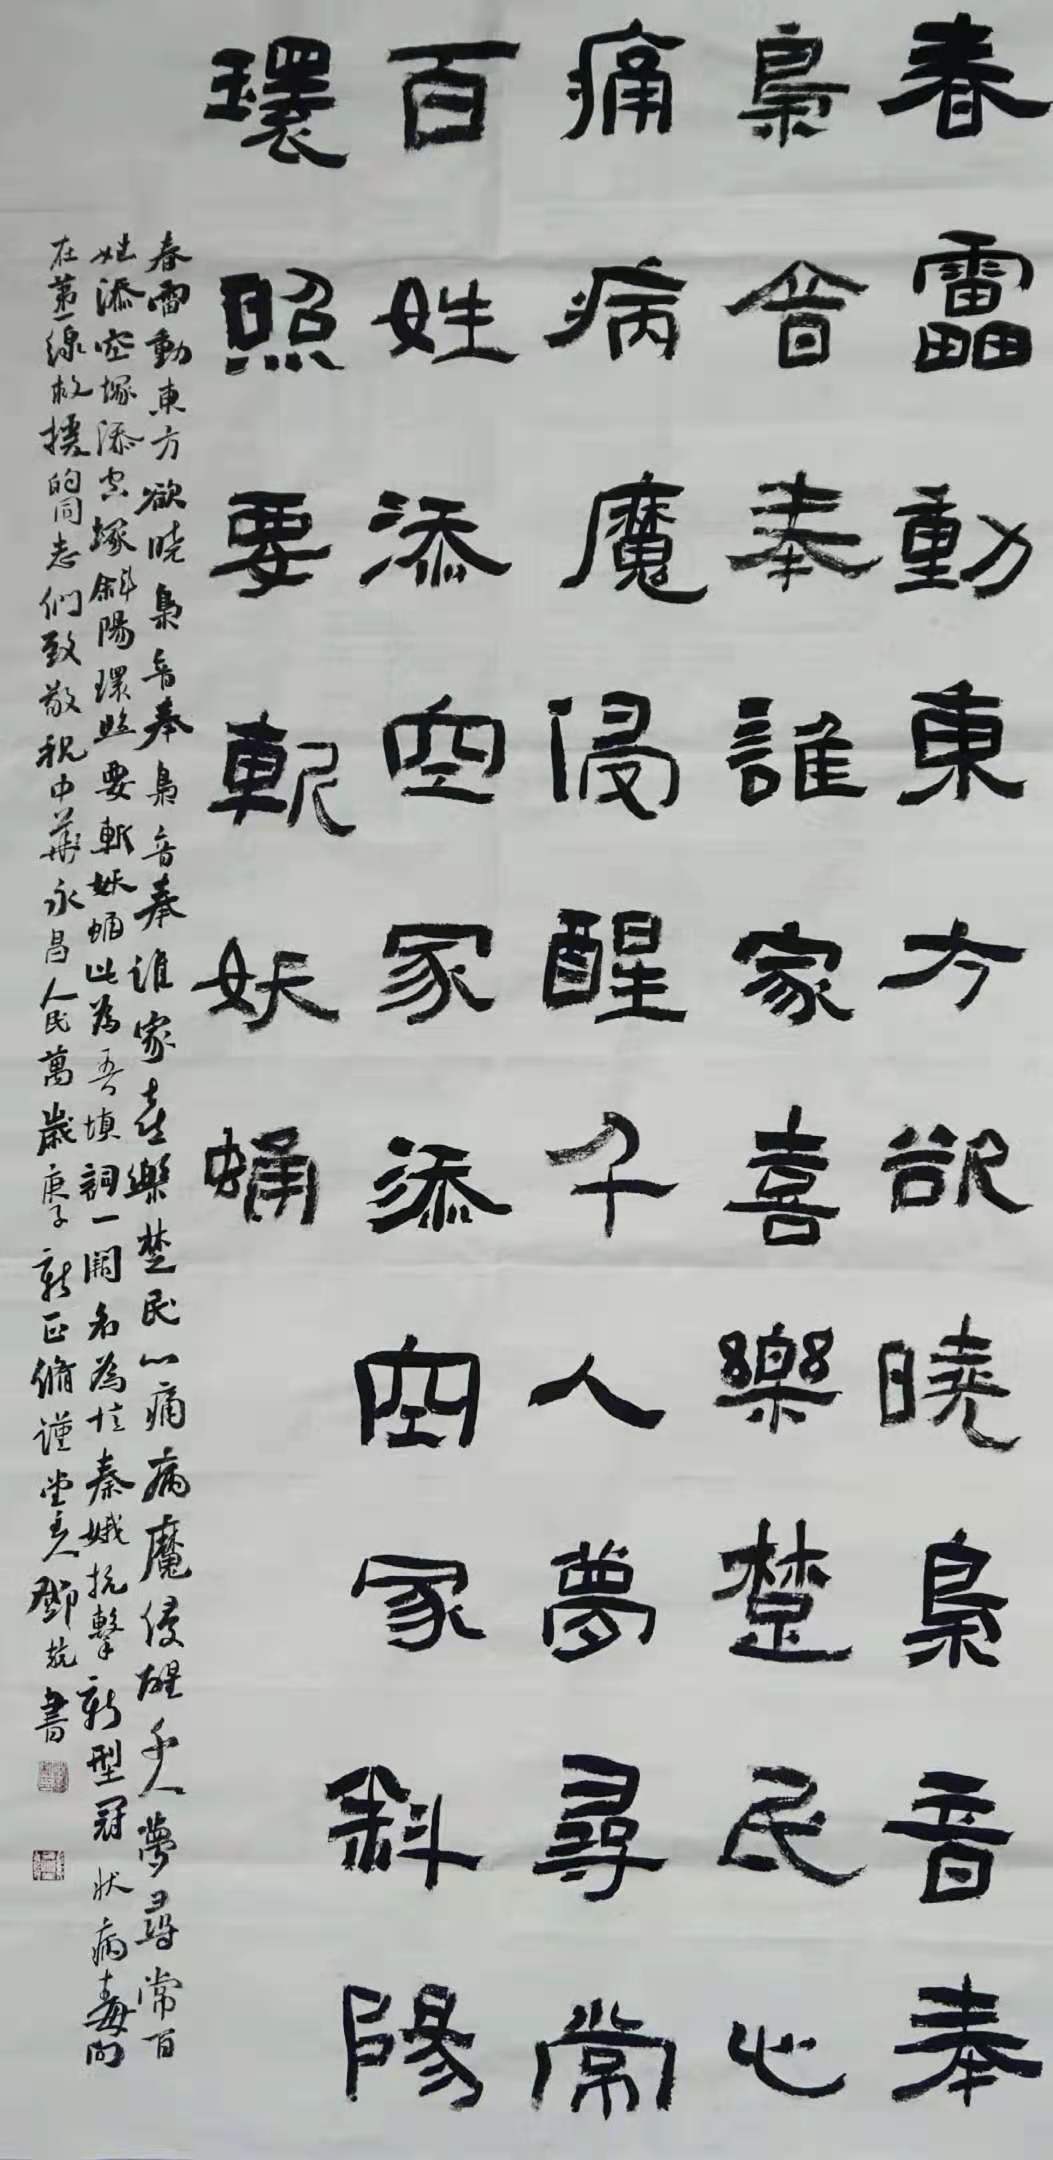 春雷動東方欲曉梟音奉
梟音奉誰家喜樂楚民心
痛病魔侵醒千人夢尋常
百姓添空冢添空冢斜陽
環照要斬妖蛹
春雷動東方欲曉梟音奉梟音奉誰家喜樂楚民心痛病魔侵醒千人夢尋常百
姓添空塚添空塚斜陽環照要斬妖蛹此為吾填詞一闋名為憶秦娥抗擊新型冠狀病毒向
在第一線救援的同志們致敬祝中華永昌人民萬歲庚子新正脩謹堂主人鄧 書